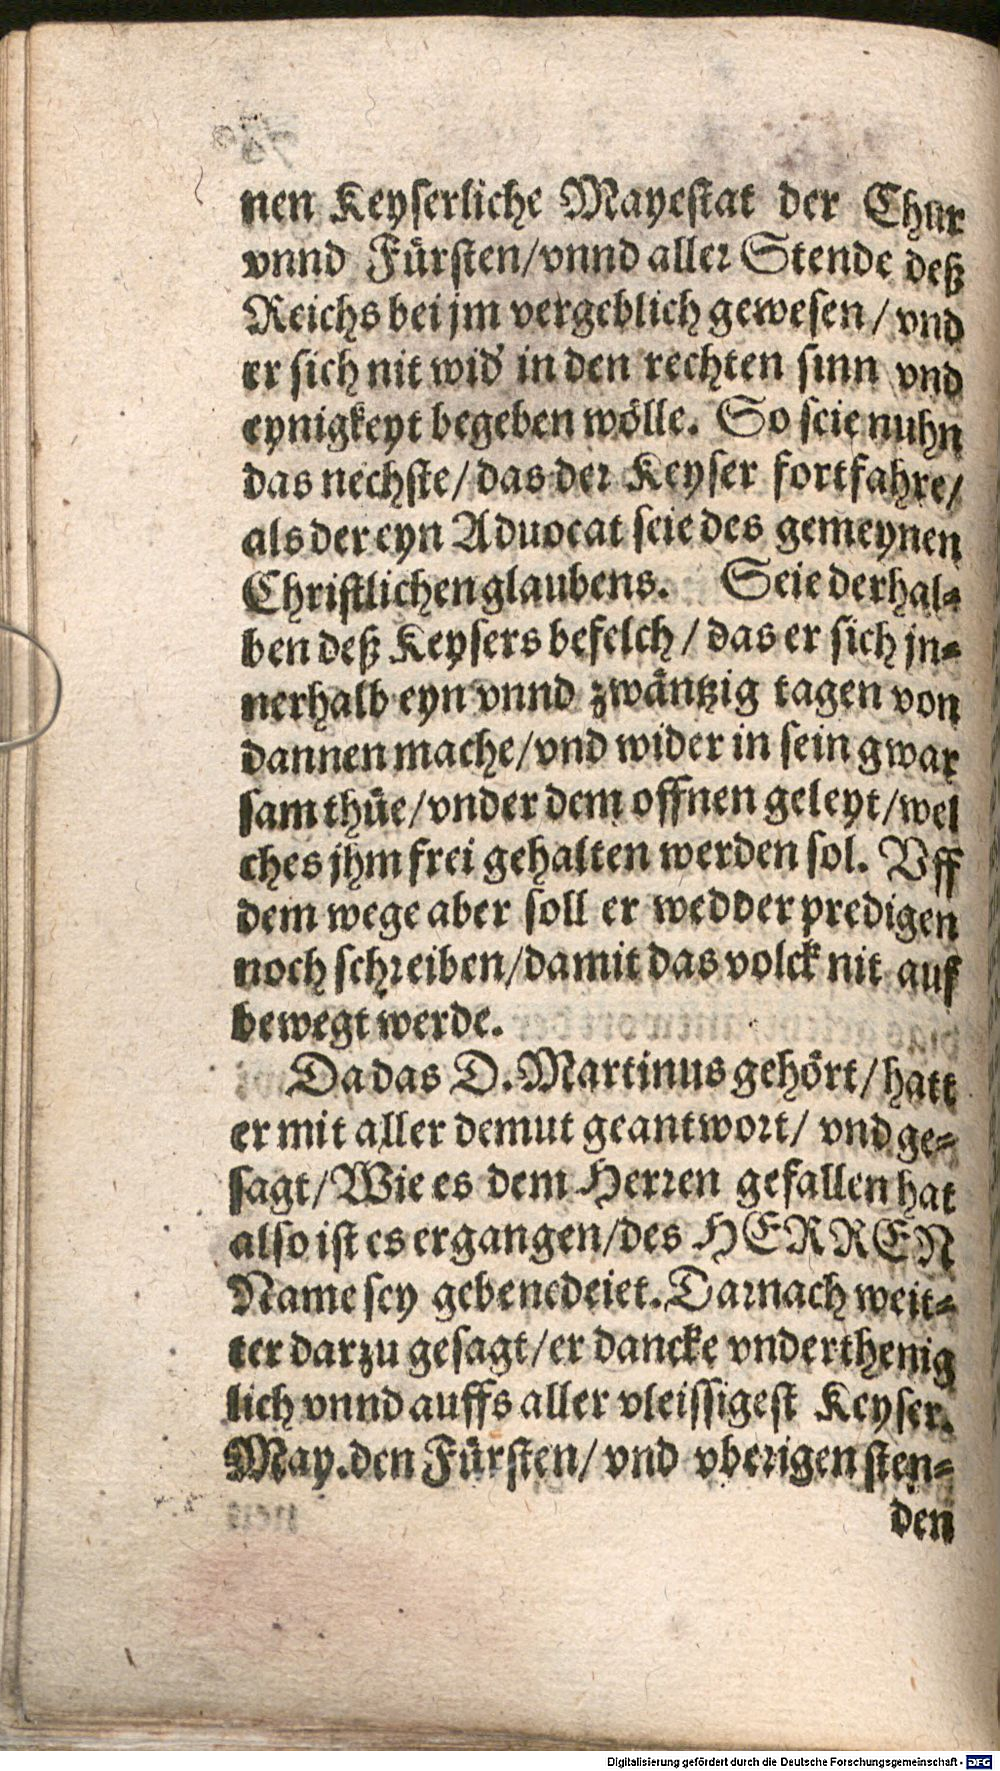 nen Keyſerliche Mayeſtat der Chur
vnnd Fürſten/vnnd aller Stende deß
Reichs bei jm vergeblich geweſen/ vnd
er ſich nit wid' in den rechten ſinn vnd
eynigkeyt begeben wölle. So ſeie nuhn
das nechſte/ das der Keyſer fortfahre/
als der eyn Aduocat ſeie des gemeynen
Chriſtlichen glaubens. Seie derhal⸗
ben deß Keyſers befelch/ das er ſich jn⸗
nerhalb eyn vnnd zwäntzig tagen von
dannen mache/vnd wider in ſein gwar
ſam thüe/vnder dem offnen geleyt/wel
ches jhm frei gehalten werden ſol. Vff
dem wege aber ſoll er wedder predigen
noch ſchreiben/damit das volck nit auf
bewegt werde.
Da das D. Martinus gehört/ hatt
er mit aller demut geantwort/ vnd ge⸗
ſagt/ Wie es dem Herren gefallen hat
alſo iſt es ergangen/des HERREN
Name ſey gebenedeiet. Darnach weit⸗
ter darzu geſagt/er dancke vnderthenig
lich vnnd auffs aller vleiſſigeſt Keyſer.
May. den Fürſten/ vnd vberigen ſten⸗
den
Digitalisierung gefördert durch die Deutsche Forschungsgemeinschaft - DFG